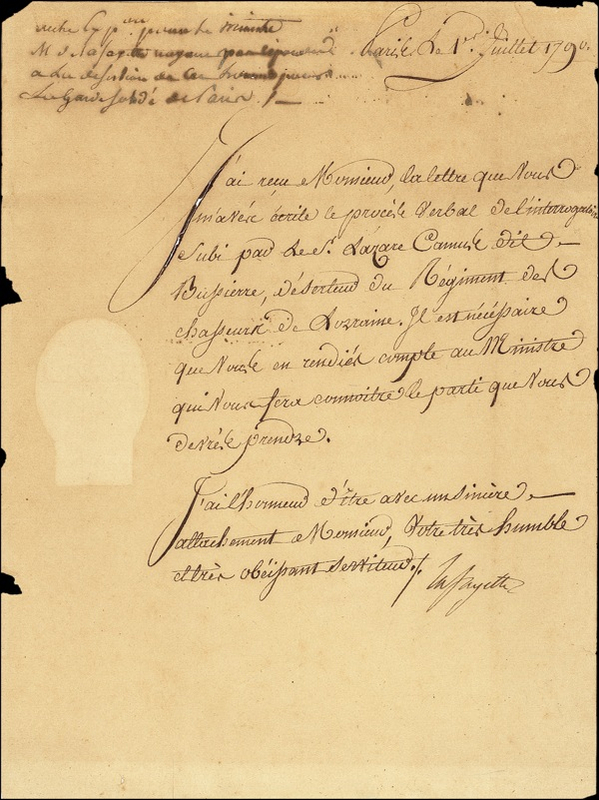 Paris le 1er Juillet 1790.
J'ai reçu Monsieur, la lettre que vous
m'avés écrite le procès verbal de l'interrogatoire
subi par le Sr. Lazare Camus dit
Bussierre, déserteur du Régiment des
chasseurs de Lorraine. Il est nécéssaire
que vous en rendiés compte au Ministre
qui vous fera connoitre le parti que vous
devrés prendre.
J'ai l'honneur d'être avec un sincère
attachement Monsieur, votre très humble
et très obéissant serviteur./.
Lafayette